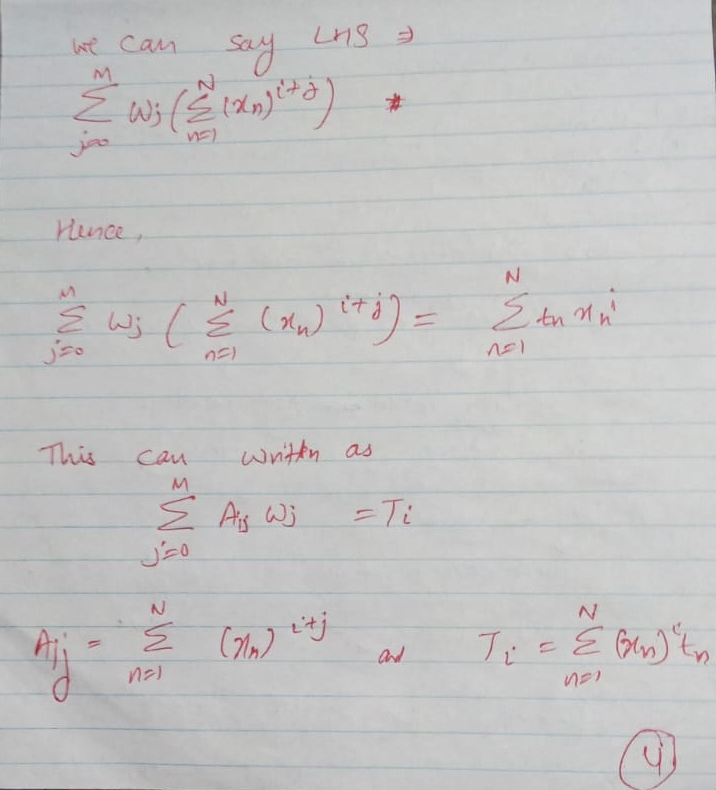 we can say LHS ⇒
∑_{j=0}^{M} Wj (∑_{n=1}^{N} (xn)^{i+j}) *
Hence,
∑_{j=0}^{M} Wj (∑_{n=1}^{N} (xn)^{i+j}) = ∑_{n=1}^{N} tn xn^i
This can written as
∑_{j=0}^{M} Aij Wj = Ti
Aij = ∑_{n=1}^{N} (xn)^{i+j} and Ti = ∑_{n=1}^{N} (xn)^i tn
4